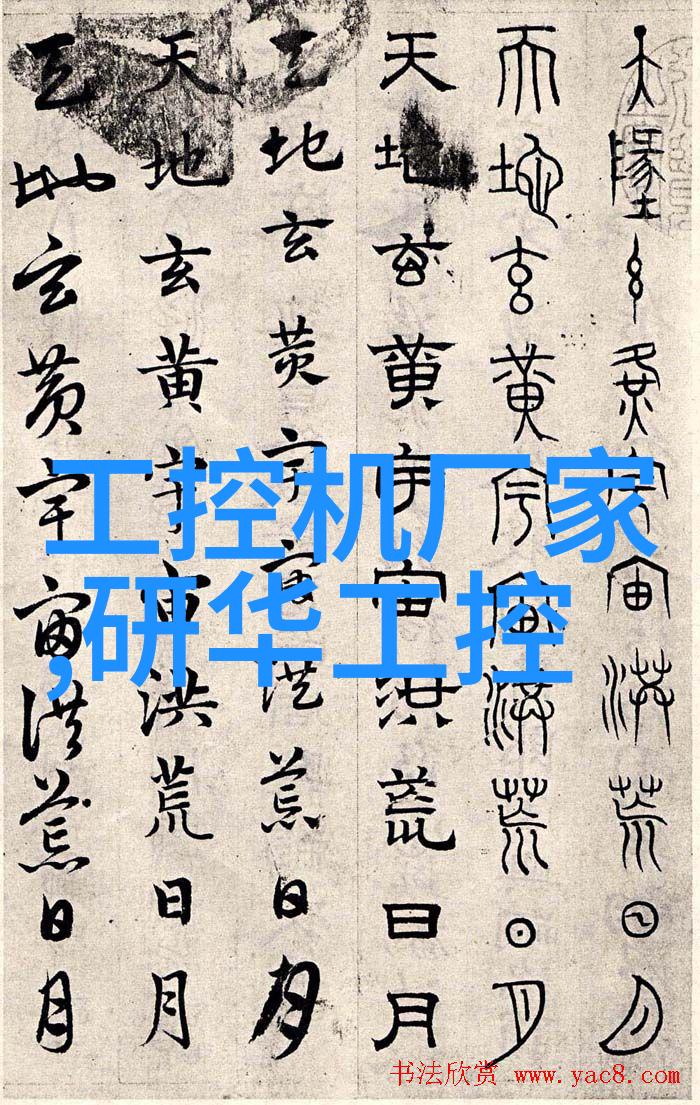 天地玄黄宇宙洪荒日月
天地玄黄宇宙洪荒日月
天地玄黄宇宙洪荒日月
天地玄黄宇宙洪荒日月
天地玄黄宇宙洪荒日月
天地玄黄宇宙洪荒日月
工控机厂家
,研华工控
书法欣赏 www.yac8.com